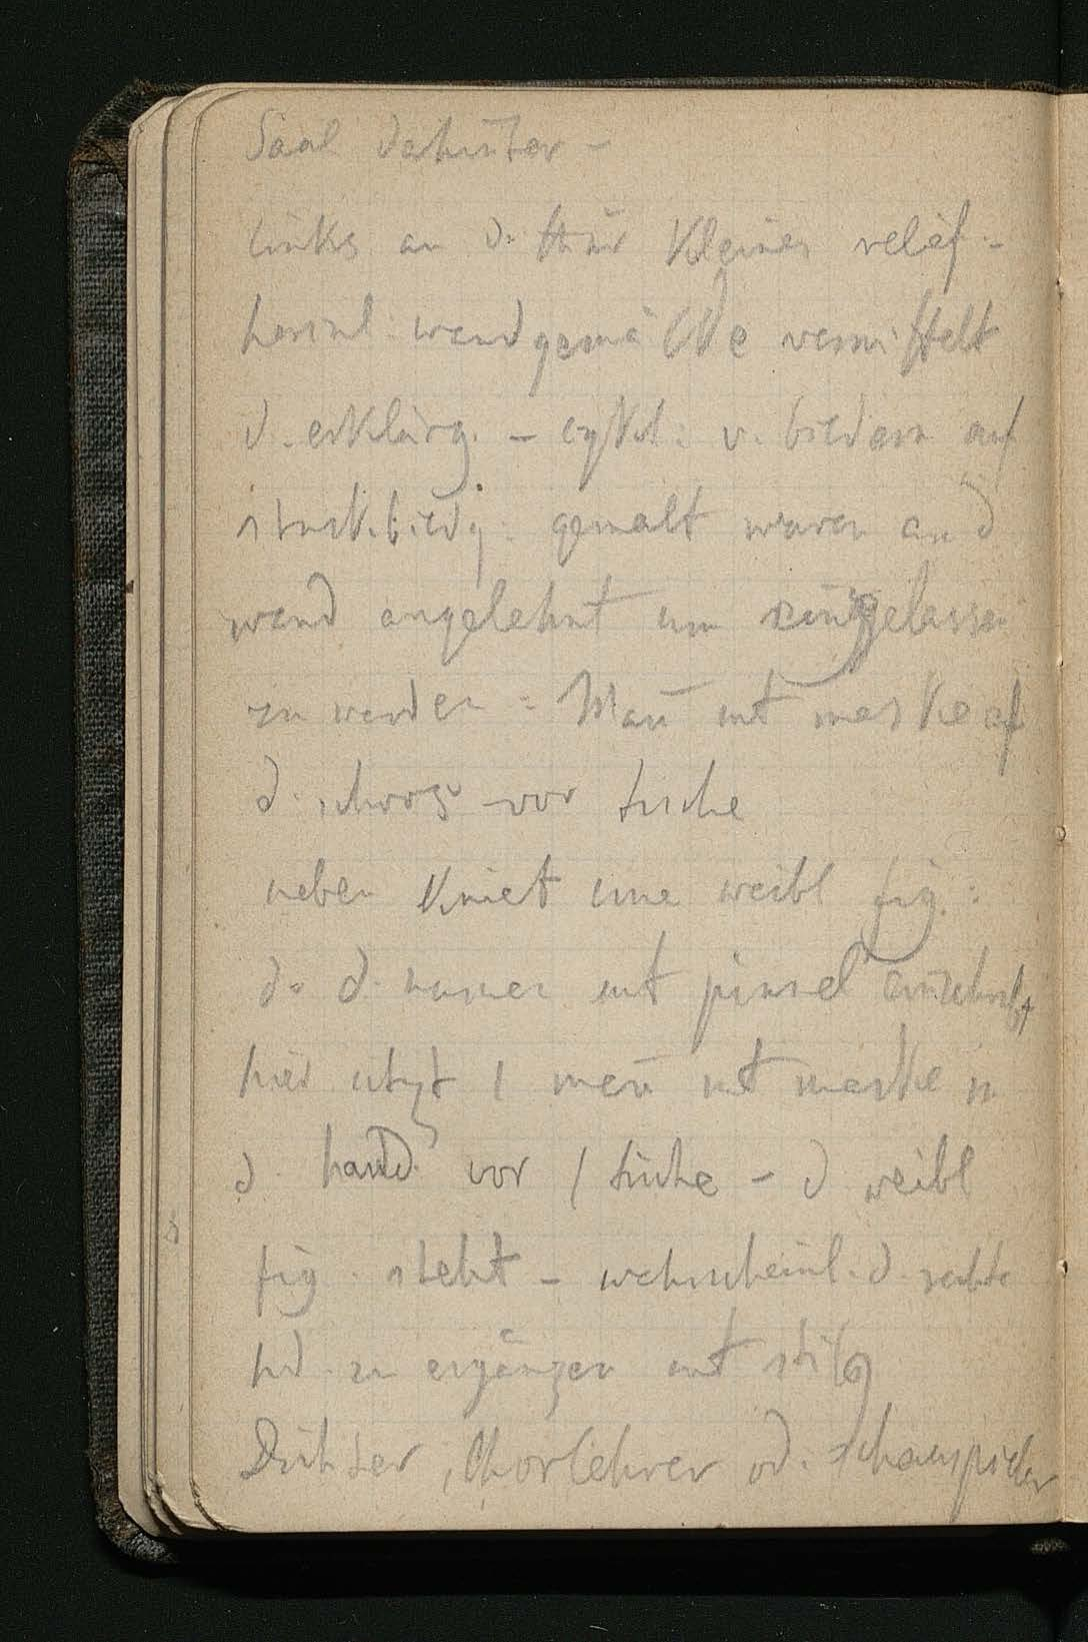 Saal dahinter –
links an d. thür kleines relief –
hercul. wandgemälde vermittelt
d. erklärg. – cykl. v. bildern auf
gemalt waren an d
wand angelehnt um eingelassen
zu werden : Mañ mit maske auf
d. schoos vor tische
neben kniet eine weibl fig :
die d. namen mit pinsel anschreibt
hier sitzt 1 mañ mit maske in
d. hand vor 1 tische – d weibl
fig. steht – wahrscheinl. d. rechte
hd. zu ergänzen mit stilg
Dichter, Chorlehrer od. schauspieler